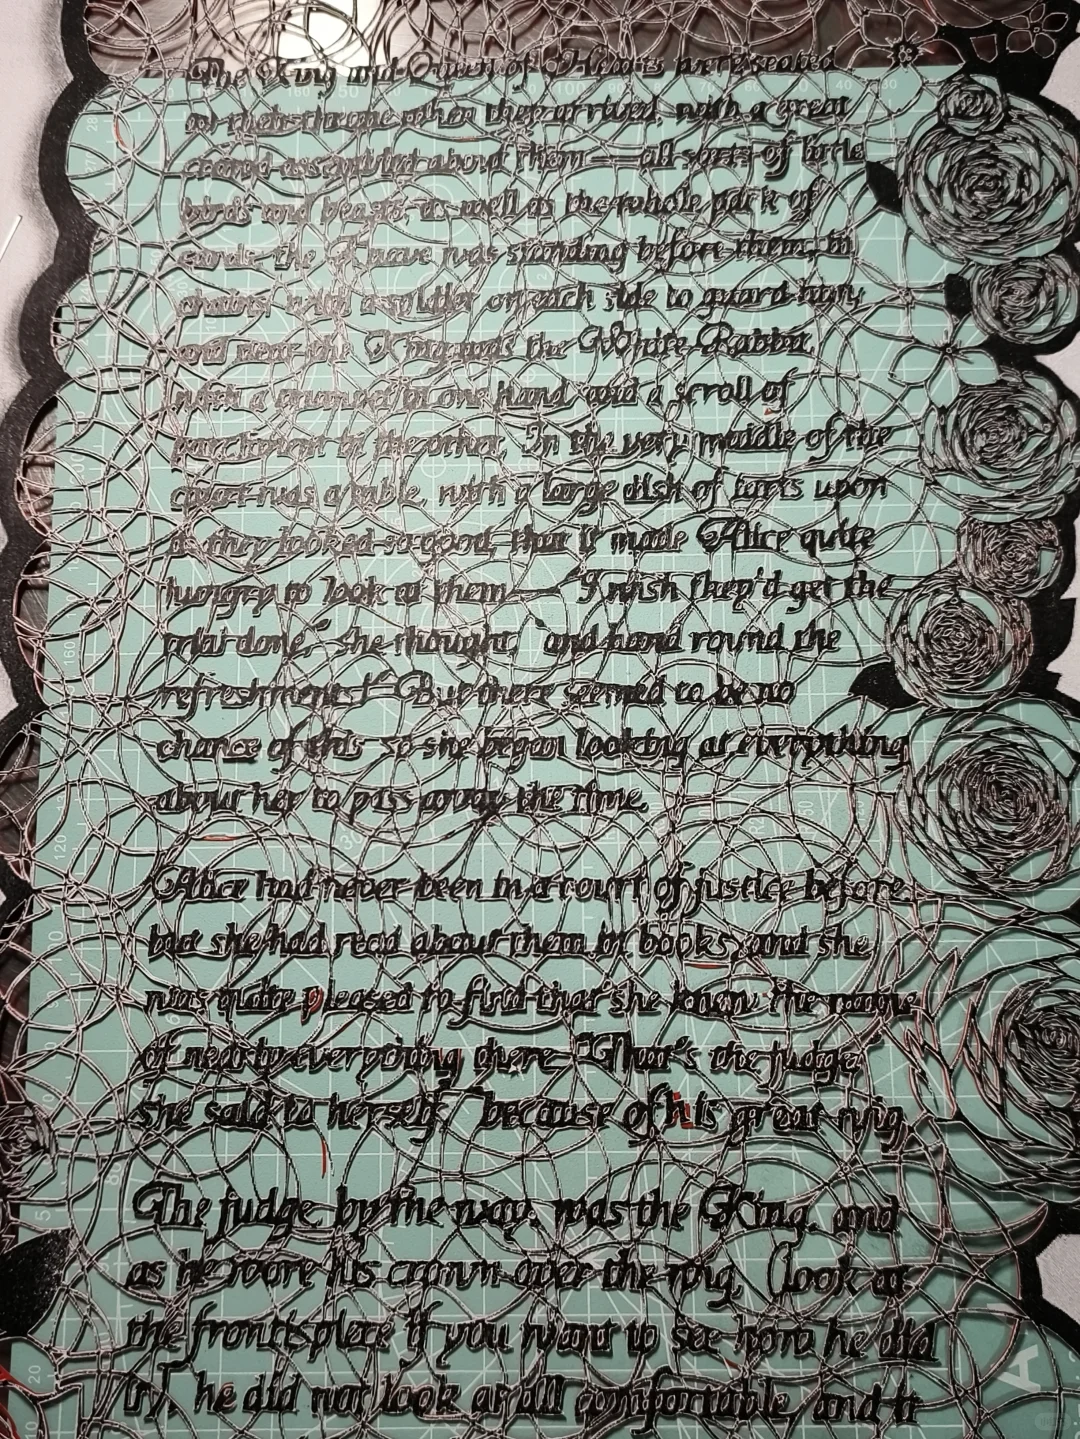 The King and Queen of Hearts were seated
on their throne when they arrived, with a great
crowd assembled about them——all sorts of little
birds and beasts, as well as the whole pack of
cards: the Knave was standing before them, in
chains, with a soldier on each side to guard him;
and near the King was the White Rabbit,
with a trumpet in one hand, and a scroll of
parchment in the other. In the very middle of the
court was a table, with a large dish of tarts upon
it: they looked so good, that it made Alice quite
hungry to look at them——"I wish they'd get the
trial done," she thought, "and hand round the
refreshments!" But there seemed to be no
chance of this, so she began looking at everything
about her to pass away the time.
Alice had never been in a court of justice before,
but she had read about them in books, and she
was quite pleased to find that she knew the name
of nearly everything there. "That's the judge,"
she said to herself, "because of his great wig."
The judge, by the way, was the King, and
as he wore his crown over the wig, (look at
the frontispiece if you want to see how he did
it), he did not look at all comfortable, and it